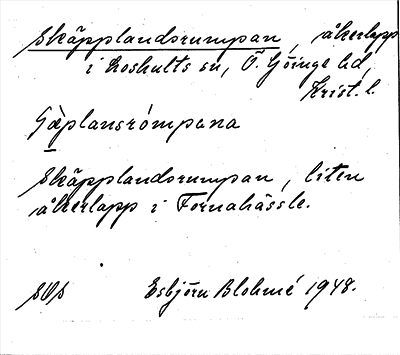 Skäpplandsrumpan, åkerlapp
i Loshults sn, Ö. Göinge hd,
Krist. l.
Skäpplandsrumpan, liten
åkerlapp i Fornahässle.
SOS Esbjörn Blohmé 1948.